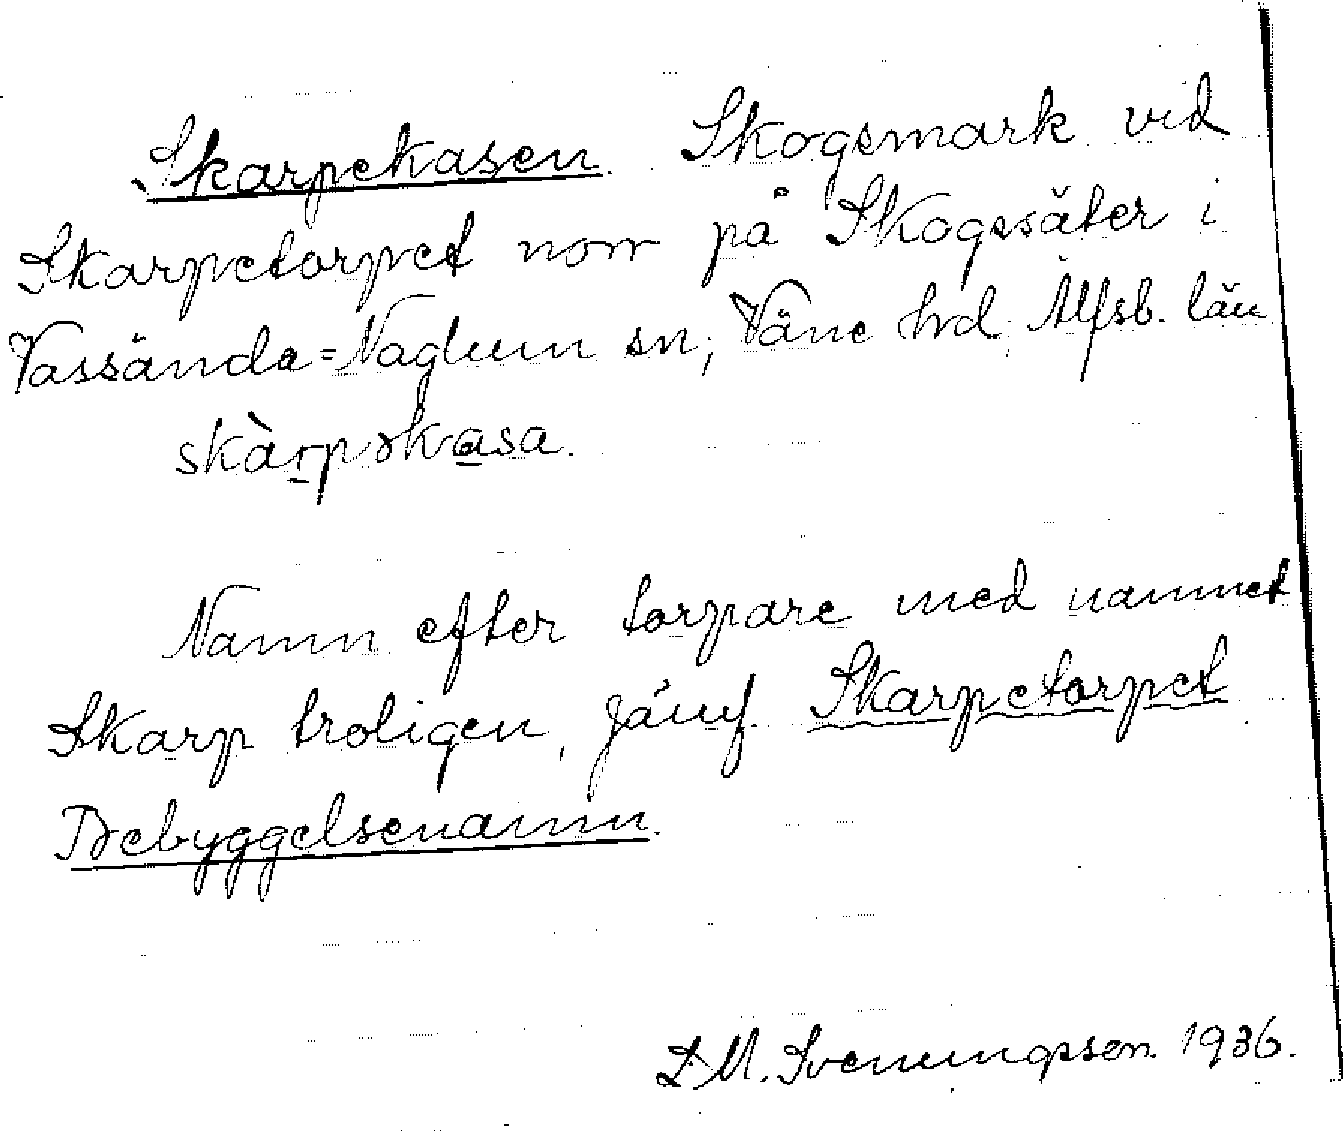 Skarpekasen. Skogsmark vid
Skarpetorpet norr på Skogssäter i
Vassända=Naglum sn, Väne hd, Älfsb. län
skàrpəkasa.
Namn efter torpare med namnet
Skarp troligen, jämf. Skarpetorpet
Bebyggelsenamn.
D. M. Svenningsson 1936.